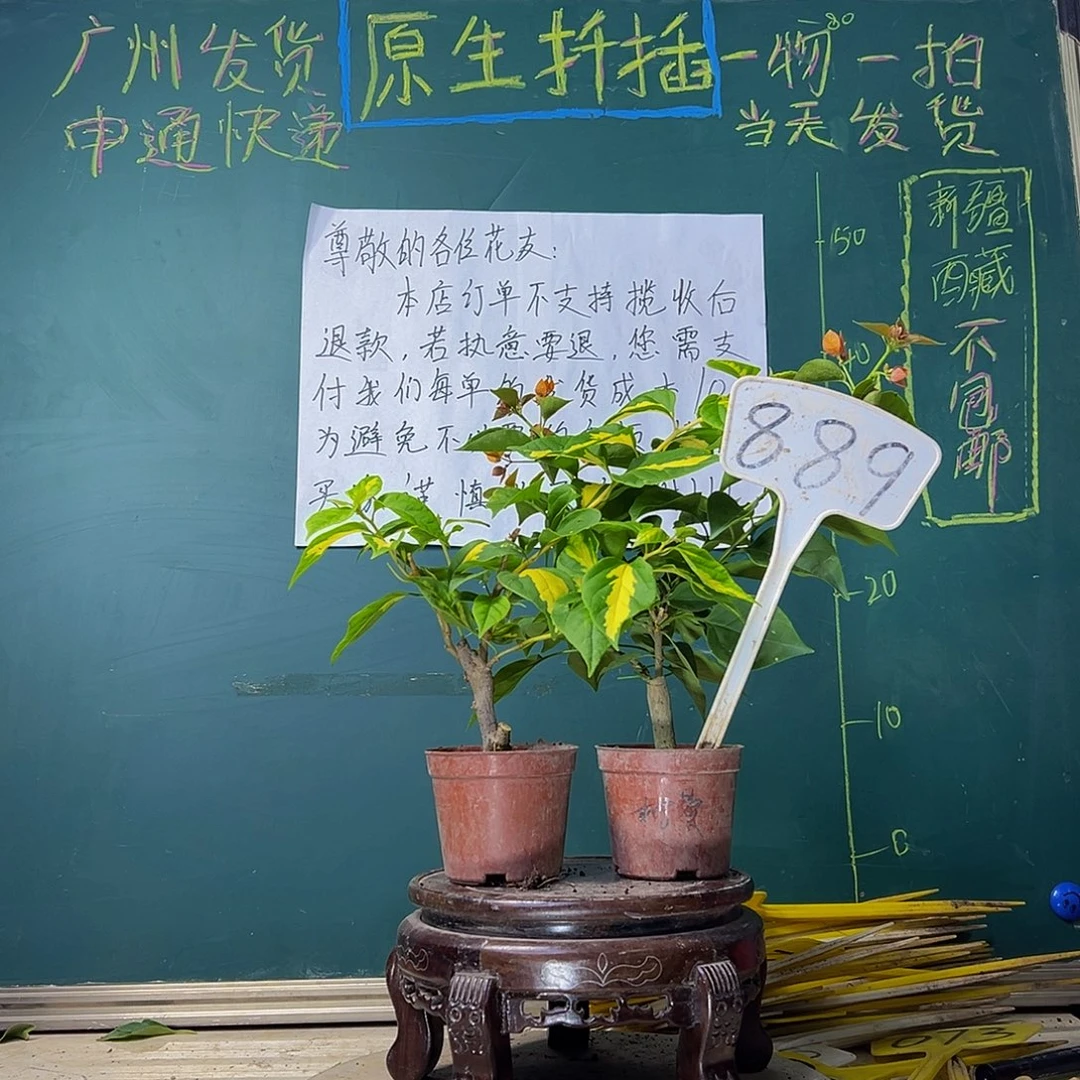 广州发货
申通快递
原生扦插
一物一拍
当天发货
80
50
20
10
0
新疆
西藏
不包邮
尊敬的各位花友:
本店订单不支持揽收后
退款,若执意要退,您需支
付我们每单的发货成本
为避免不必要的
买家谨慎
889
613